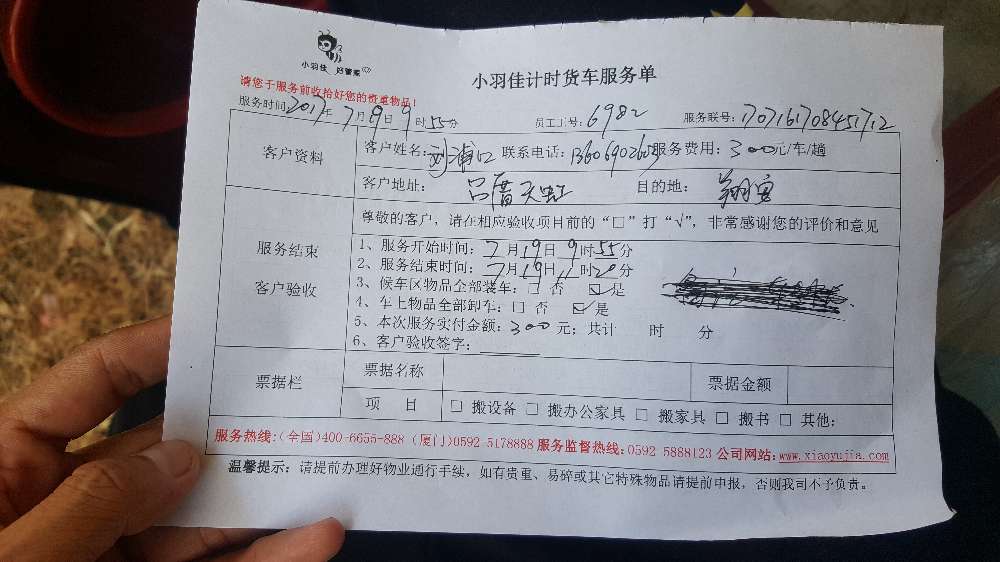 小羽佳 好管家
小羽佳计时货车服务单
请您于服务前收拾好您的贵重物品!
服务时间:2017年7月19日9时55分 员工工号:6982 服务联号:1707161708451712
客户资料
客户姓名: 联系电话: 服务费用:300元/车/趟
客户地址: 目的地:
尊敬的客户,请在相应验收项目前的“□”打“√”,非常感谢您的评价和意见
服务结束
客户验收
1、服务开始时间:7月19日9时55分
2、服务结束时间:7月19日11时20分
3、候车区物品全部装车:□ 否 ☑ 是
4、车上物品全部卸车:□ 否 ☑ 是
5、本次服务实付金额:300元;共计 时 分
6、客户验收签字:
票据栏
票据名称 票据金额
项 目 □ 搬设备 □ 搬办公家具 □ 搬家具 □ 搬书 □ 其他:
服务热线:(全国)400-6655-888 (厦门)0592 5178888 服务监督热线:0592 5888123 公司网站:www.xiaoyujia.com
温馨提示:请提前办理好物业通行手续,如有贵重、易碎或其它特殊物品请提前申报,否则我司不予负责。